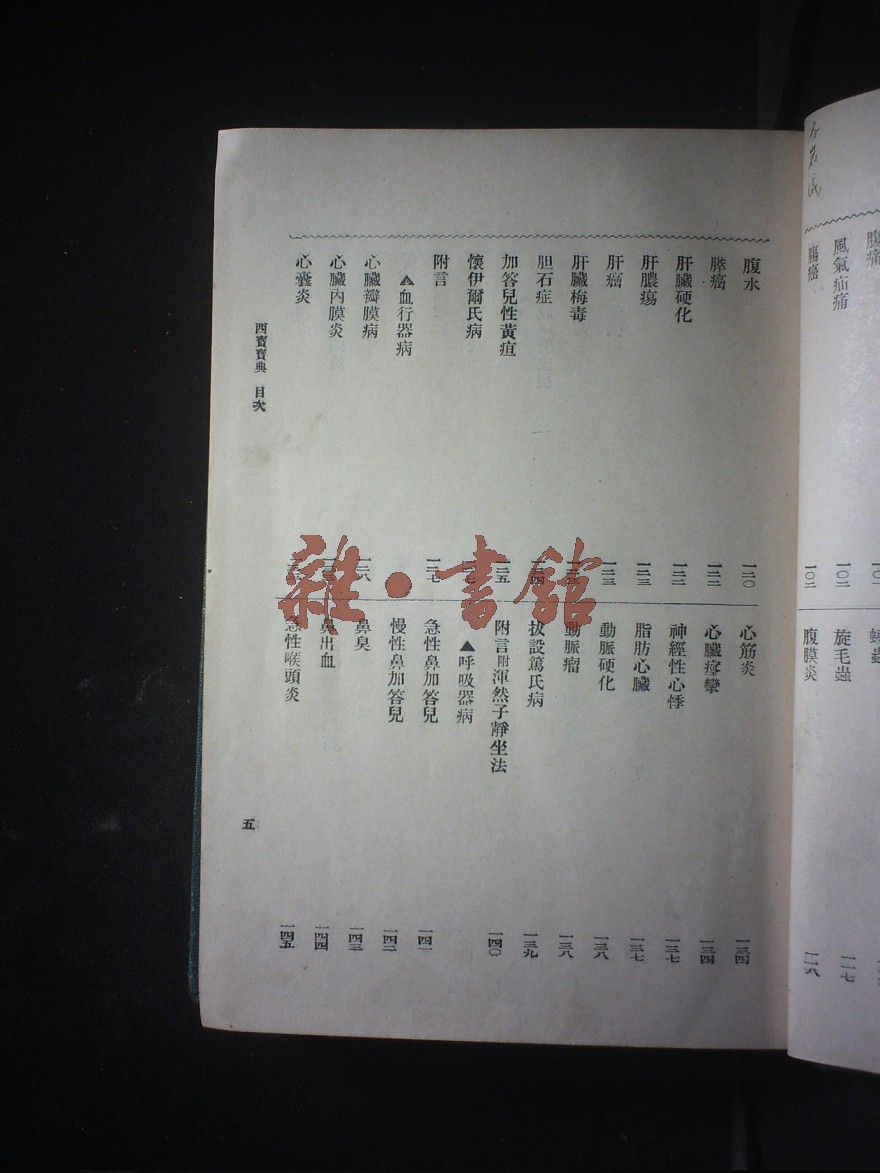 腹痛
風氣疝痛 一〇二
腸癌 一〇二
蟯蟲
旋毛蟲 一一七
腹膜炎 一一八
腹水 一二〇
膵癌 一二二
肝臟硬化 一二二
肝膿瘍 一二三
肝癌 一二三
肝臟梅毒
胆石症
加答兒性黃疸 一二五
懷伊爾氏病
附言 一二七
▲血行器病
心臟瓣膜病 一二八
心臟內膜炎
心囊炎
心筋炎 一三四
心臟痙攣 一三四
神經性心悸 一三七
脂肪心臟 一三七
動脈硬化 一三八
動脈瘤 一三八
拔設篤氏病 一三九
附言附渾然子靜坐法 一四〇
▲呼吸器病
急性鼻加答兒 一四一
慢性鼻加答兒 一四二
鼻臭 一四三
鼻出血 一四四
急性喉頭炎 一四五
四寶寶典 目次
五
雜·書館